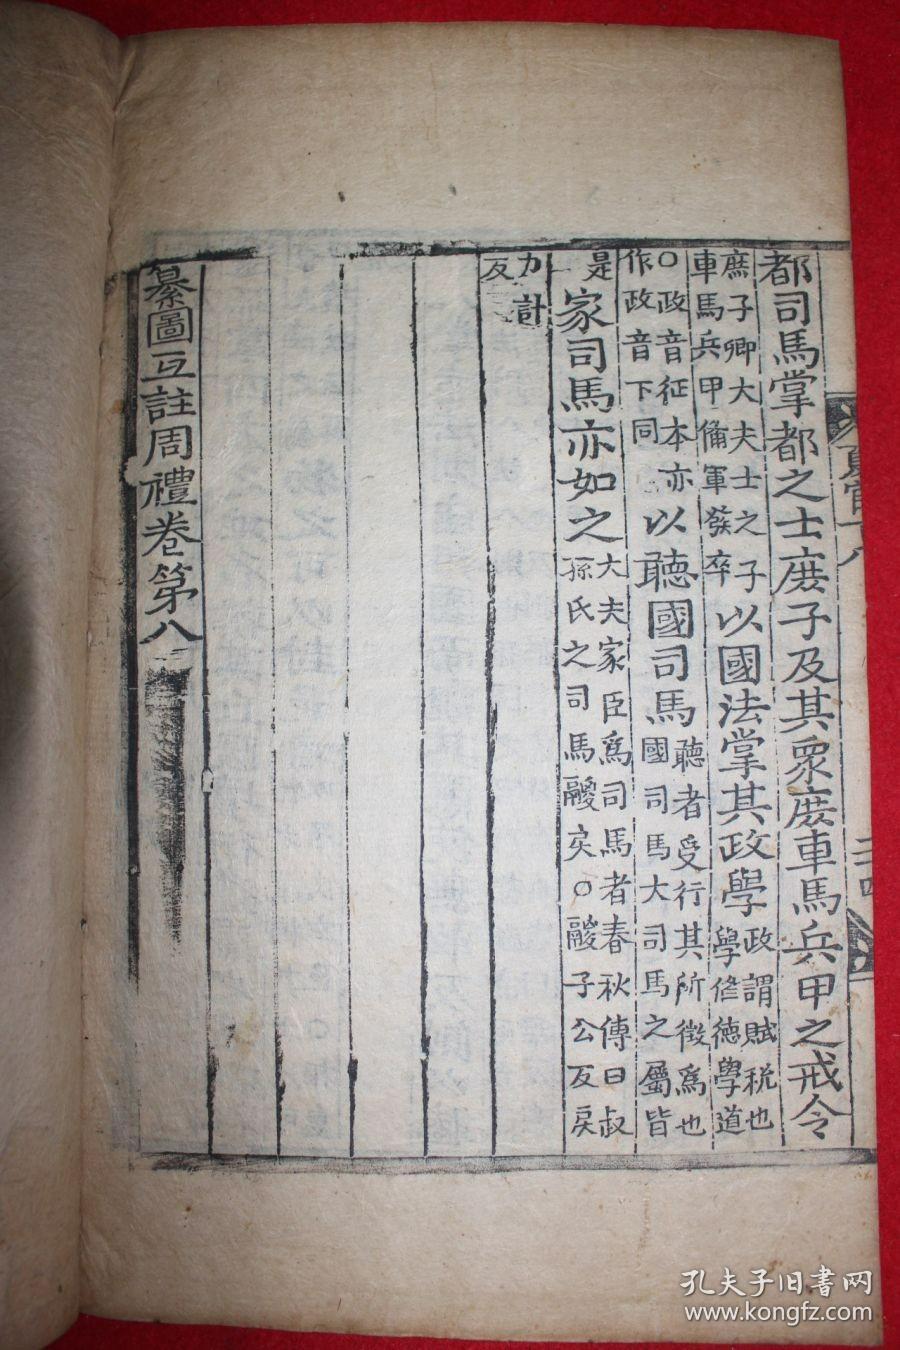 都司馬掌都之士庶子及其衆庶車馬兵甲之戒令
庶子卿大夫士之子
車馬兵甲備軍發卒
以國法掌其政學
政謂賦稅也
學修德學道
○政音征本亦
作政音下同
以聽國司馬
聽者受行其所徵爲也
國司馬大司馬之屬皆
是
家司馬亦如之
大夫家臣爲司馬者春秋傳曰叔
孫氏之司馬鬷戾○鬷子公反戾
力計
反
纂圖互註周禮卷第八
夏官 八
二十四
孔夫子旧書网
www.kongfz.com